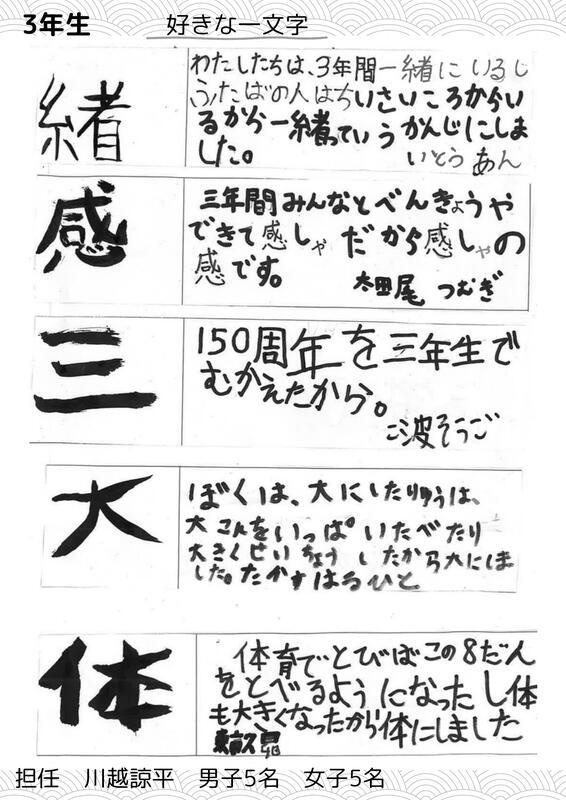 3年生 好きな一文字
緒
わたしたちは、3年間一緒にいるし
ふたばの人はちいさいころからい
るから一緒っていうかんじにしま
した。 いとう あん
感
三年間みんなとべんきょうや
できて感しゃ だから感しゃの
感です。 太田尾 つむぎ
三
150周年を三年生で
むかえたから。
波そうご
大
ぼくは、大にしたりゅうは、
大さんをいっぱいたべたり
大きくせいちょうしたから大にしま
した。たかすはるひと
体
体育でとびばこの8だん
をとべるようになったし体
も大きくなったから体にしました
担任 川越諒平 男子5名 女子5名